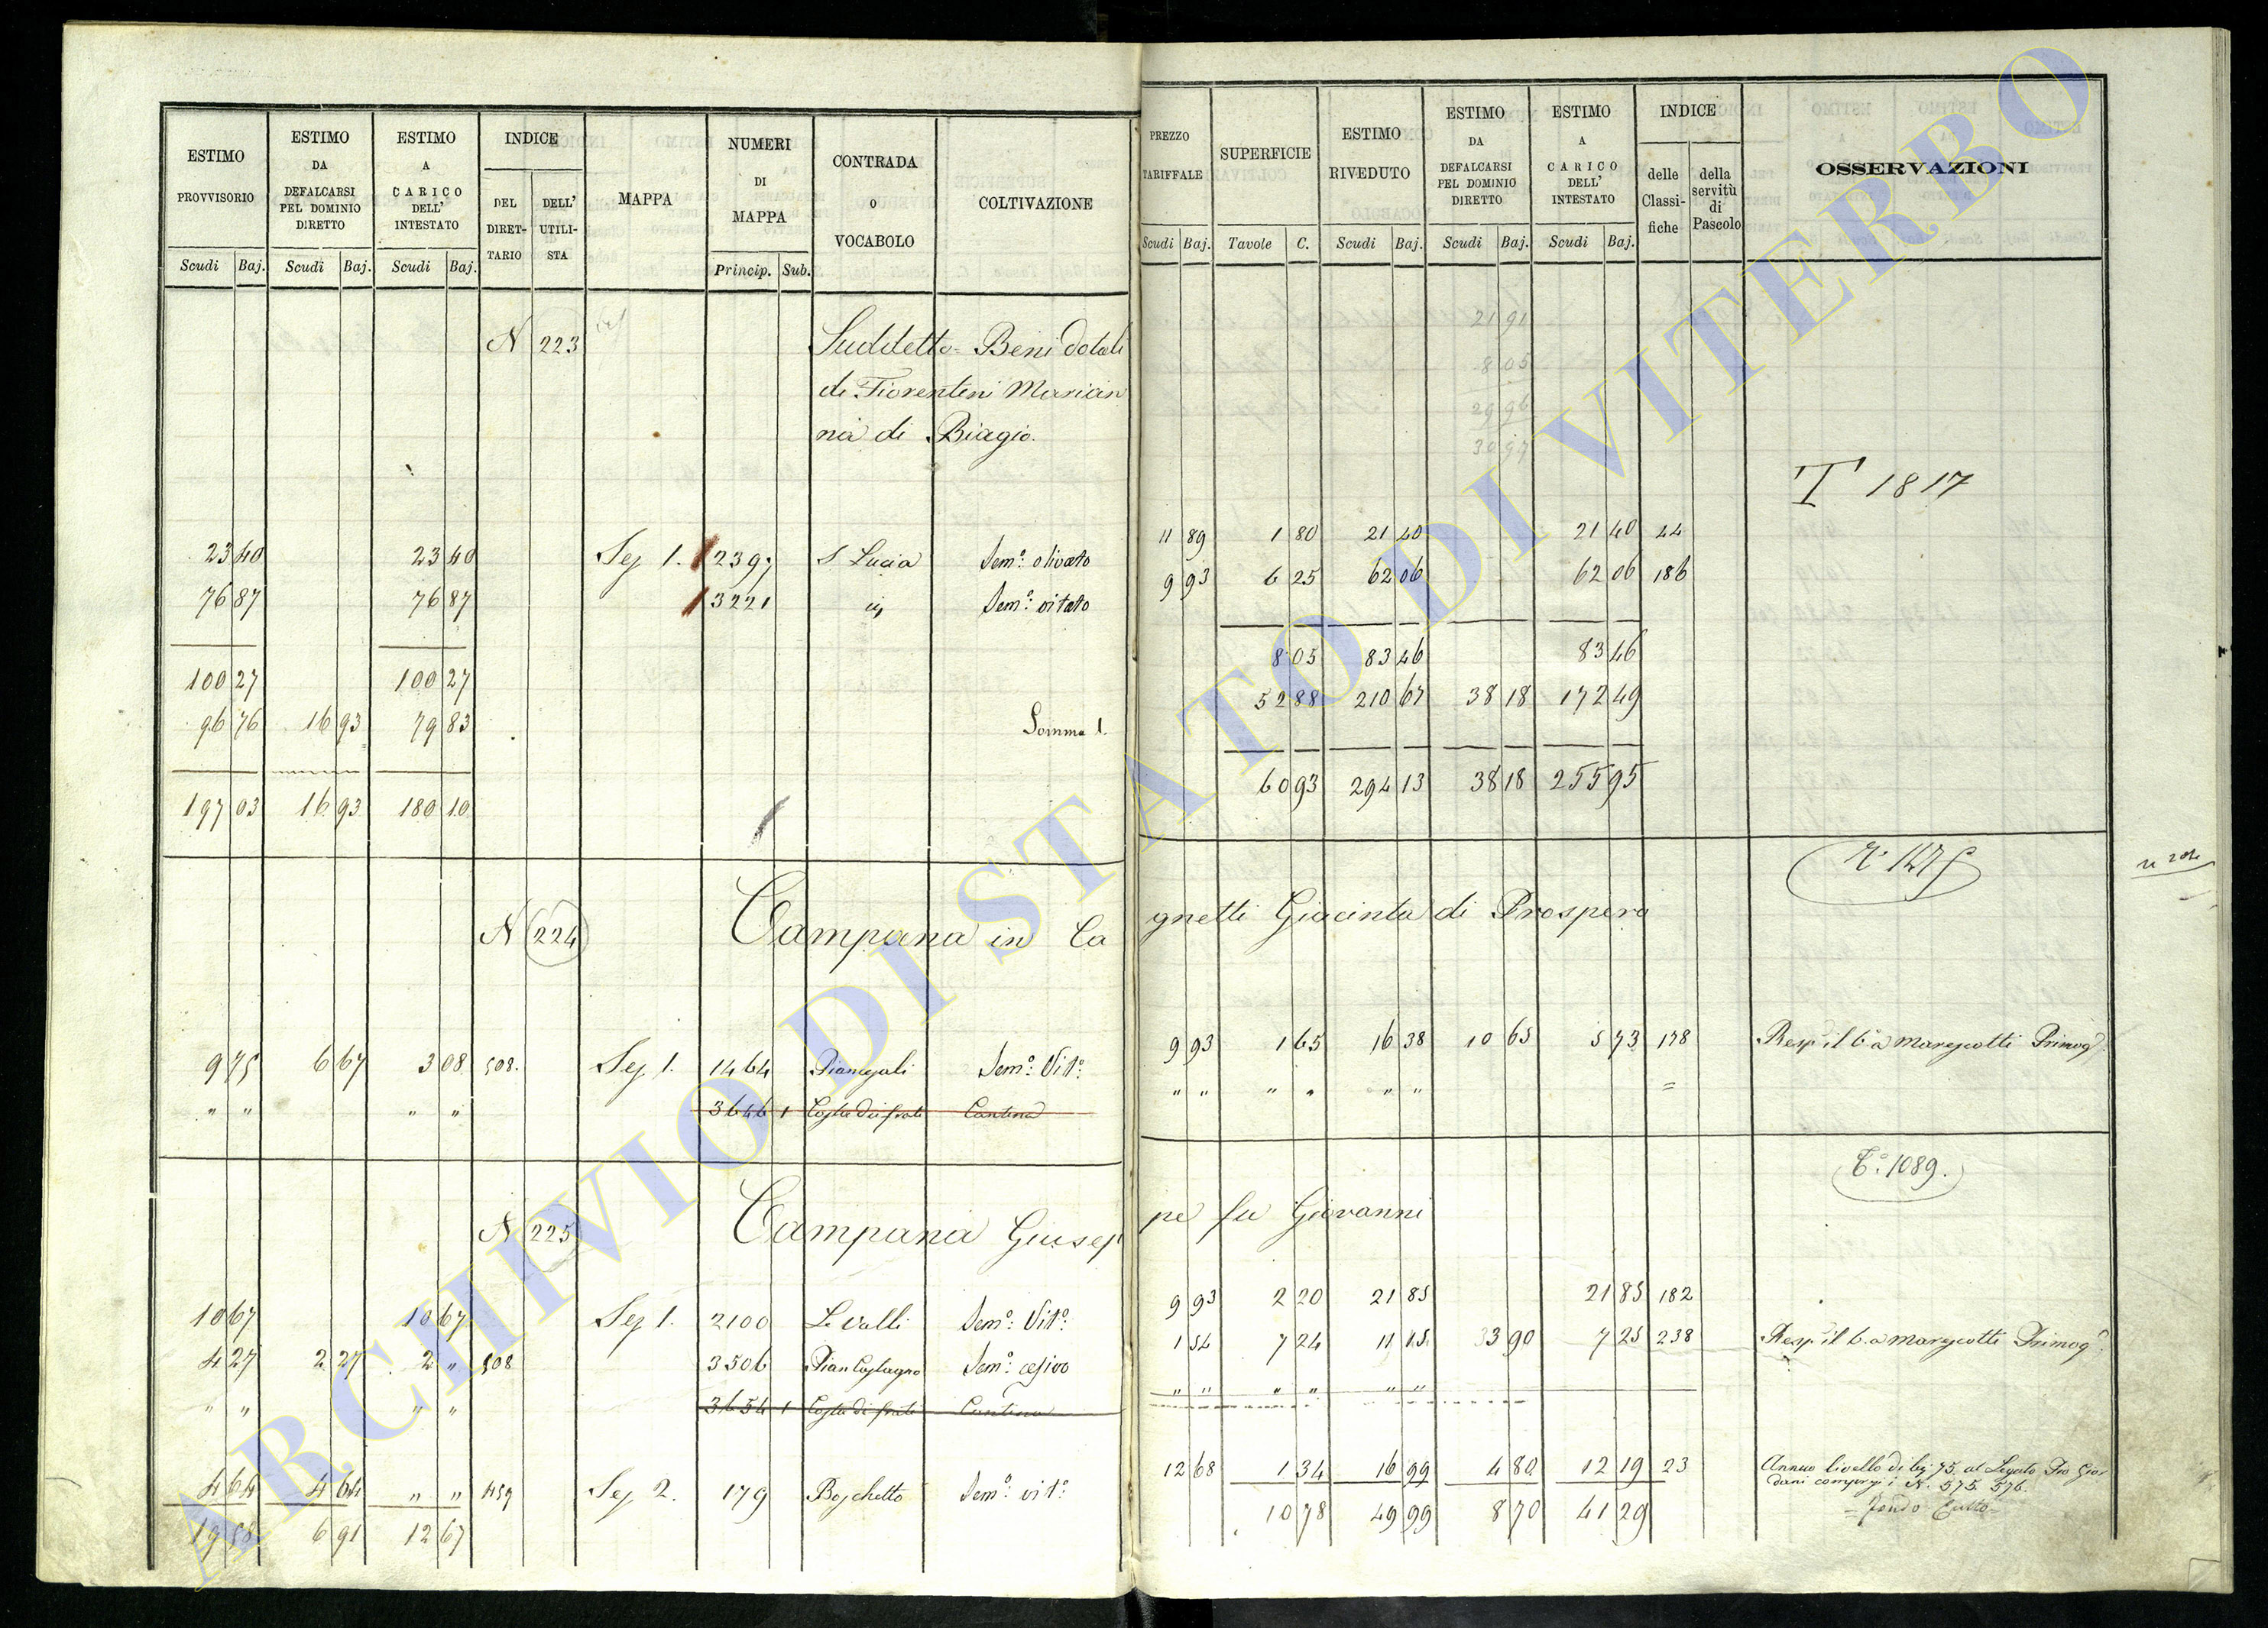 ESTIMO PROVVISORIO ESTIMO DA DEFALCARSI PEL DOMINIO DIRETTO ESTIMO A CARICO DELL' INTESTATO INDICE DEL DIRETTARIO DELL' UTILISTA MAPPA NUMERI DI MAPPA CONTRADA O VOCABOLO COLTIVAZIONE
Scudi Baj. Scudi Baj. Scudi Baj. Princip. Sub.
N 223 Suddetto = Beni dotali
di Fiorentini Marian
na di Biagio.
23 40 23 40 Sez 1. 2397 S Lucia Sem.o olivato
76 87 76 87 3221 id Sem.o vitato
100 27 100 27
96 76 16 93 79 83 Somma 1.
197 03 16 93 180 10
N 224 Campana in Ca
9 75 6 67 3 08 508. Sez 1. 1464 Piancejali Sem.o Vit.o
" " " " 3646 1 Costa dei frati Cantina
N 225 Campana Giusep
10 67 10 67 Sez 1. 2100 Le valli Sem.o Vit.o
4 27 2 27 2 " 508 3506 Pian Castagno Sem.o cesivo
" " " " 3654 1 Costa di frati Cantina
4 64 4 64 " " 459 Sez 2. 179 Boschetto Sem.o vit.o
19 58 6 91 12 67
PREZZO TARIFFALE SUPERFICIE ESTIMO RIVEDUTO ESTIMO DA DEFALCARSI PEL DOMINIO DIRETTO ESTIMO A CARICO DELL' INTESTATO INDICE delle Classifiche della servitù di Pascolo OSSERVAZIONI
Scudi Baj. Tavole C. Scudi Baj. Scudi Baj. Scudi Baj.
21 91
8 05
29 96
30 97
T 1817
11 89 1 80 21 40 21 40 44
9 93 6 25 62 06 62 06 186
8 05 83 46 83 46
52 88 210 67 38 18 172 49
60 93 294 13 38 18 255 95
gnetti Giacinta di Prospero
9 93 1 65 16 38 10 65 5 73 178 Resp il 6.a Marescotti Primog.
" " " " " " =
T.o 1089.
pe fu Giovanni
9 93 2 20 21 85 21 85 182
1 54 7 24 11 15 3 90 7 25 238 Resp il 6.a Marescotti Primog.
" " " " " "
12 68 1 34 16 99 4 80 12 19 23 Annuo livello di bj 75. al Legato Pio Gior
dani compresi i N. 575. 576.
10 78 49 99 8 70 41 29 = Fondo Culto =
ARCHIVIO DI STATO DI VITERBO